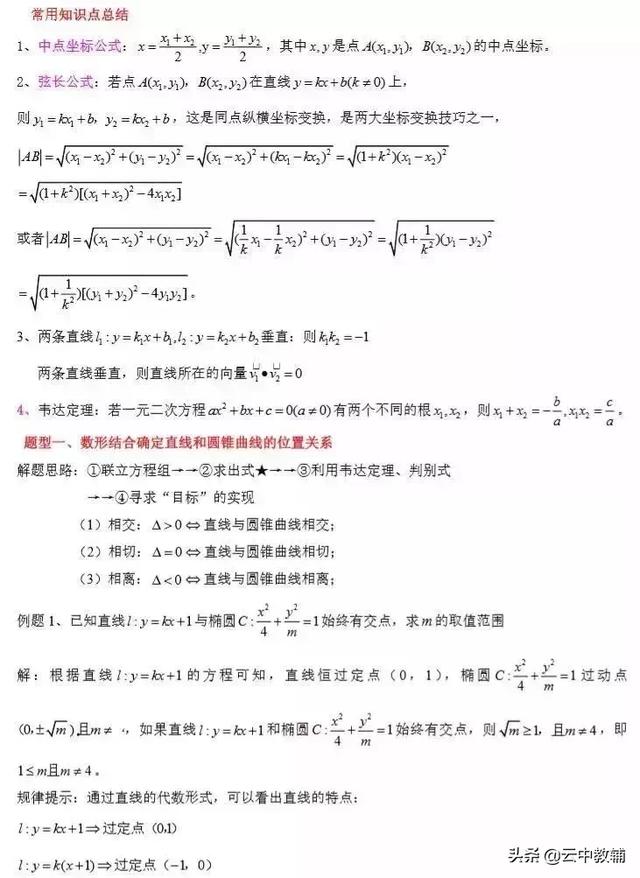 常用知识点总结
1、中点坐标公式：x = (x₁ + x₂)/2, y = (y₁ + y₂)/2，其中 x, y 是点 A(x₁, y₁)，B(x₂, y₂) 的中点坐标。
2、弦长公式：若点 A(x₁, y₁)，B(x₂, y₂) 在直线 y = kx + b(k ≠ 0) 上，
则 y₁ = kx₁ + b，y₂ = kx₂ + b，这是同点纵横坐标变换，是两大坐标变换技巧之一，
|AB| = √((x₁ − x₂)² + (y₁ − y₂)²) = √((x₁ − x₂)² + (kx₁ − kx₂)²) = √((1 + k²)(x₁ − x₂)²)
= √((1 + k²)[(x₁ + x₂)² − 4x₁x₂])
或者 |AB| = √((x₁ − x₂)² + (y₁ − y₂)²) = √((1/k x₁ − 1/k x₂)² + (y₁ − y₂)²) = √((1 + 1/k²)(y₁ − y₂)²)
= √((1 + 1/k²)[(y₁ + y₂)² − 4y₁y₂])。
3、两条直线 l₁ : y = k₁x + b₁, l₂ : y = k₂x + b₂ 垂直：则 k₁k₂ = −1
两条直线垂直，则直线所在的向量 v₁ • v₂ = 0
4、韦达定理：若一元二次方程 ax² + bx + c = 0(a ≠ 0) 有两个不同的根 x₁, x₂，则 x₁ + x₂ = −b/a, x₁x₂ = c/a。
题型一、数形结合确定直线和圆锥曲线的位置关系
解题思路：①联立方程组→→②求出式★→→③利用韦达定理、判别式
→→④寻求“目标”的实现
（1）相交：Δ > 0 ⇔ 直线与圆锥曲线相交；
（2）相切：Δ = 0 ⇔ 直线与圆锥曲线相切；
（3）相离：Δ < 0 ⇔ 直线与圆锥曲线相离；
例题1、已知直线 l : y = kx + 1 与椭圆 C : x²/4 + y²/m = 1 始终有交点，求 m 的取值范围
解：根据直线 l : y = kx + 1 的方程可知，直线恒过定点（0，1），椭圆 C : x²/4 + y²/m = 1 过动点
(0, ±√m)，且 m ≠ ，如果直线 l : y = kx + 1 和椭圆 C : x²/4 + y²/m = 1 始终有交点，则 √m ≥ 1，且 m ≠ 4，即
1 ≤ m 且 m ≠ 4。
规律提示：通过直线的代数形式，可以看出直线的特点：
l : y = kx + 1 ⇒ 过定点（0,1）
l : y = k(x + 1) ⇒ 过定点（−1，0）
头条 @云中教辅